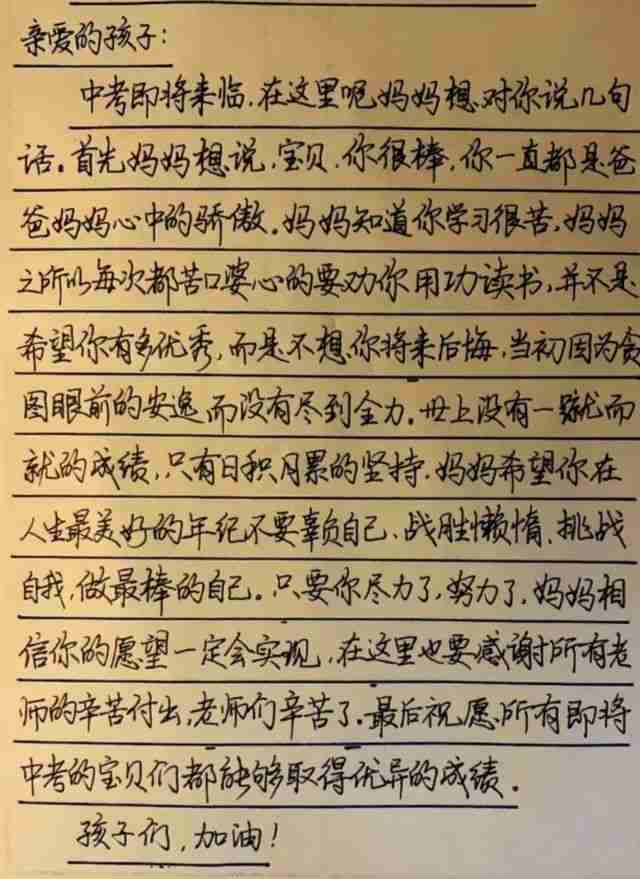 亲爱的孩子：
中考即将来临，在这里呢妈妈想对你说几句
话。首先妈妈想说，宝贝，你很棒，你一直都是爸
爸妈妈心中的骄傲。妈妈知道你学习很苦，妈妈
之所以每次都苦口婆心的要劝你用功读书，并不是
希望你有多优秀，而是不想你将来后悔，当初因为贪
图眼前的安逸而没有尽到全力。世上没有一蹴而
就的成绩，只有日积月累的坚持，妈妈希望你在
人生最美好的年纪不要辜负自己、战胜懒惰、挑战
自我，做最棒的自己。只要你尽力了，努力了，妈妈相
信你的愿望一定会实现，在这里也要感谢所有老
师的辛苦付出，老师们辛苦了。最后祝愿所有即将
中考的宝贝们都能够取得优异的成绩。
孩子们，加油！